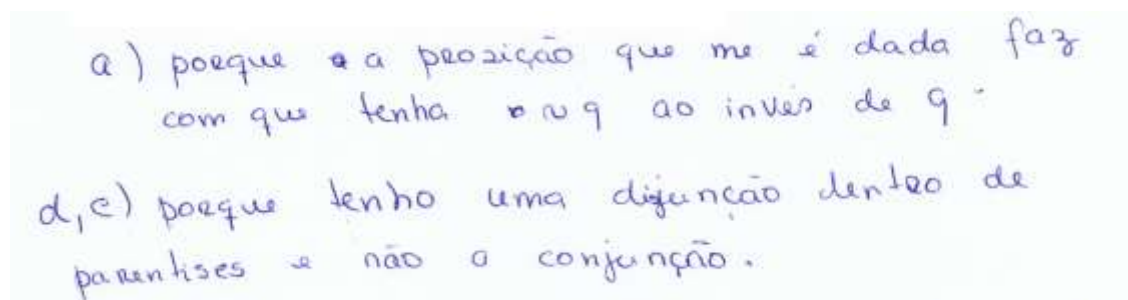 a) porque a prosição que me é dada faz
com que tenha ~q ao invés de q.
d,c) porque tenho uma dijunção dentro de
parentises e não a conjunção.